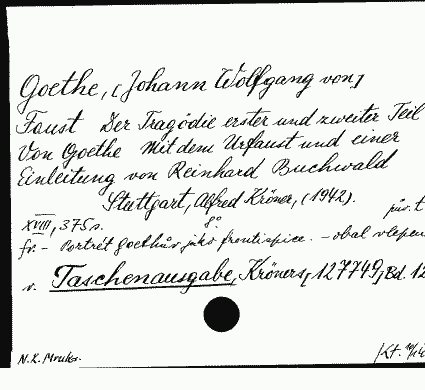 Goethe, [Johann Wolfgang von]
Faust Der Tragödie erster und zweiter Teil
Von Goethe Mit dem Urfaust und einer
Einleitung von Reinhard Buchwald
Stuttgart, Alfred Kröner, (1942).
XVIII, 375 s. 8°.
fr. - Portrét Goethův jako frontispice. - obal vlepen
v. Taschenausgabe, Kröners, 127749, Bd. 12
N.K. Mruks.